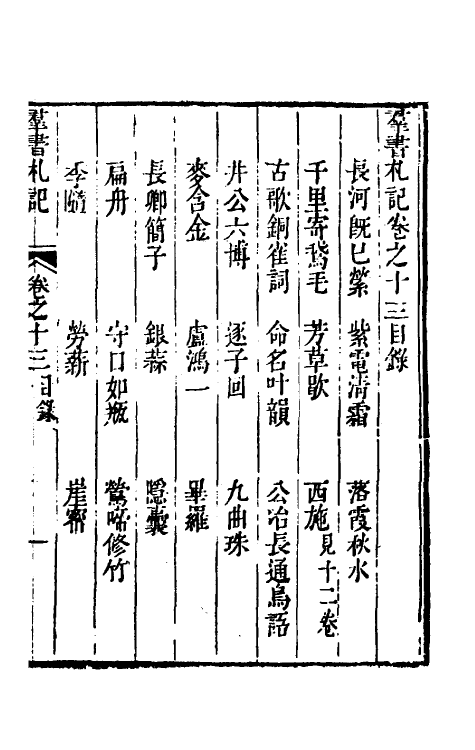 羣書札記卷之十三目錄
長河既已縈　紫電淸霜　落霞秋水
千里寄鵞毛　芳草歇　西施見十二卷
古歌銅雀詞　命名叶韻　公冶長通鳥語
井公六博　逐子回　九曲珠
麥含金　盧鴻一　畢羅
長卿簡子　銀蒜　隱囊
扁舟　守口如瓶　鶯啼修竹
季　勞薪　崖蜜
羣書札記　卷之十三目錄　一